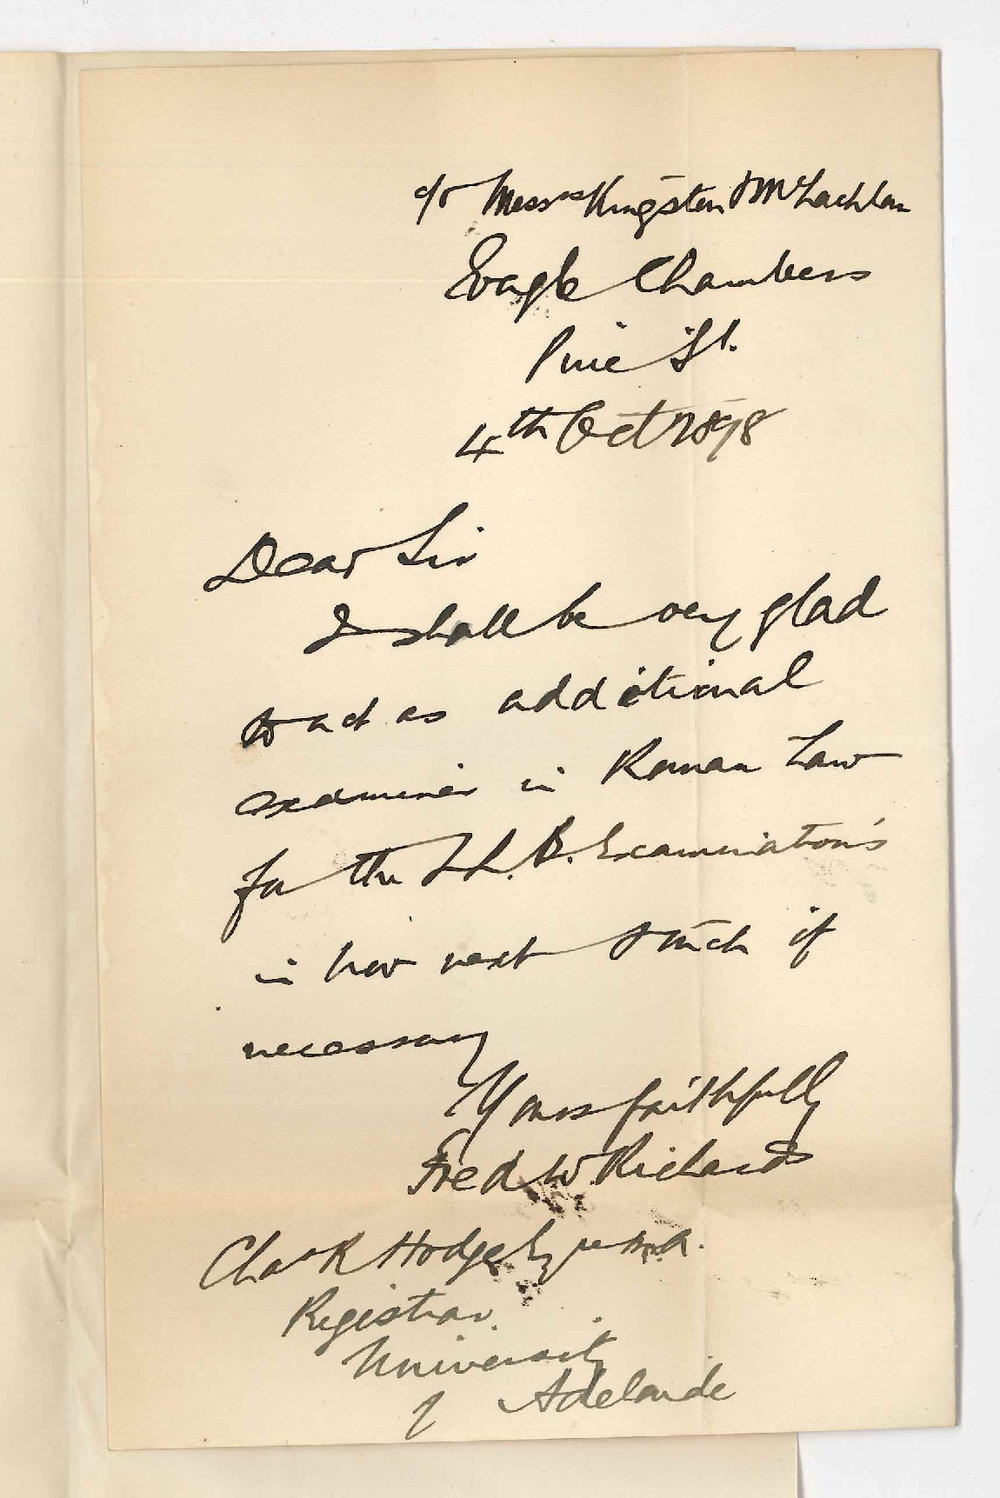 c/o Messrs Kingston & McLachlan
Eagle Chambers
Pirie St.
4th Oct 1898
Dear Sir
I shall be very glad
to act as additional
examiner in Roman Law
for the LL.B. Examinations
in Nov next & Mch if
necessary
Yours faithfully
Fred W. Richards
Chas R Hodge Esq
Registrar.
University
of Adelaide